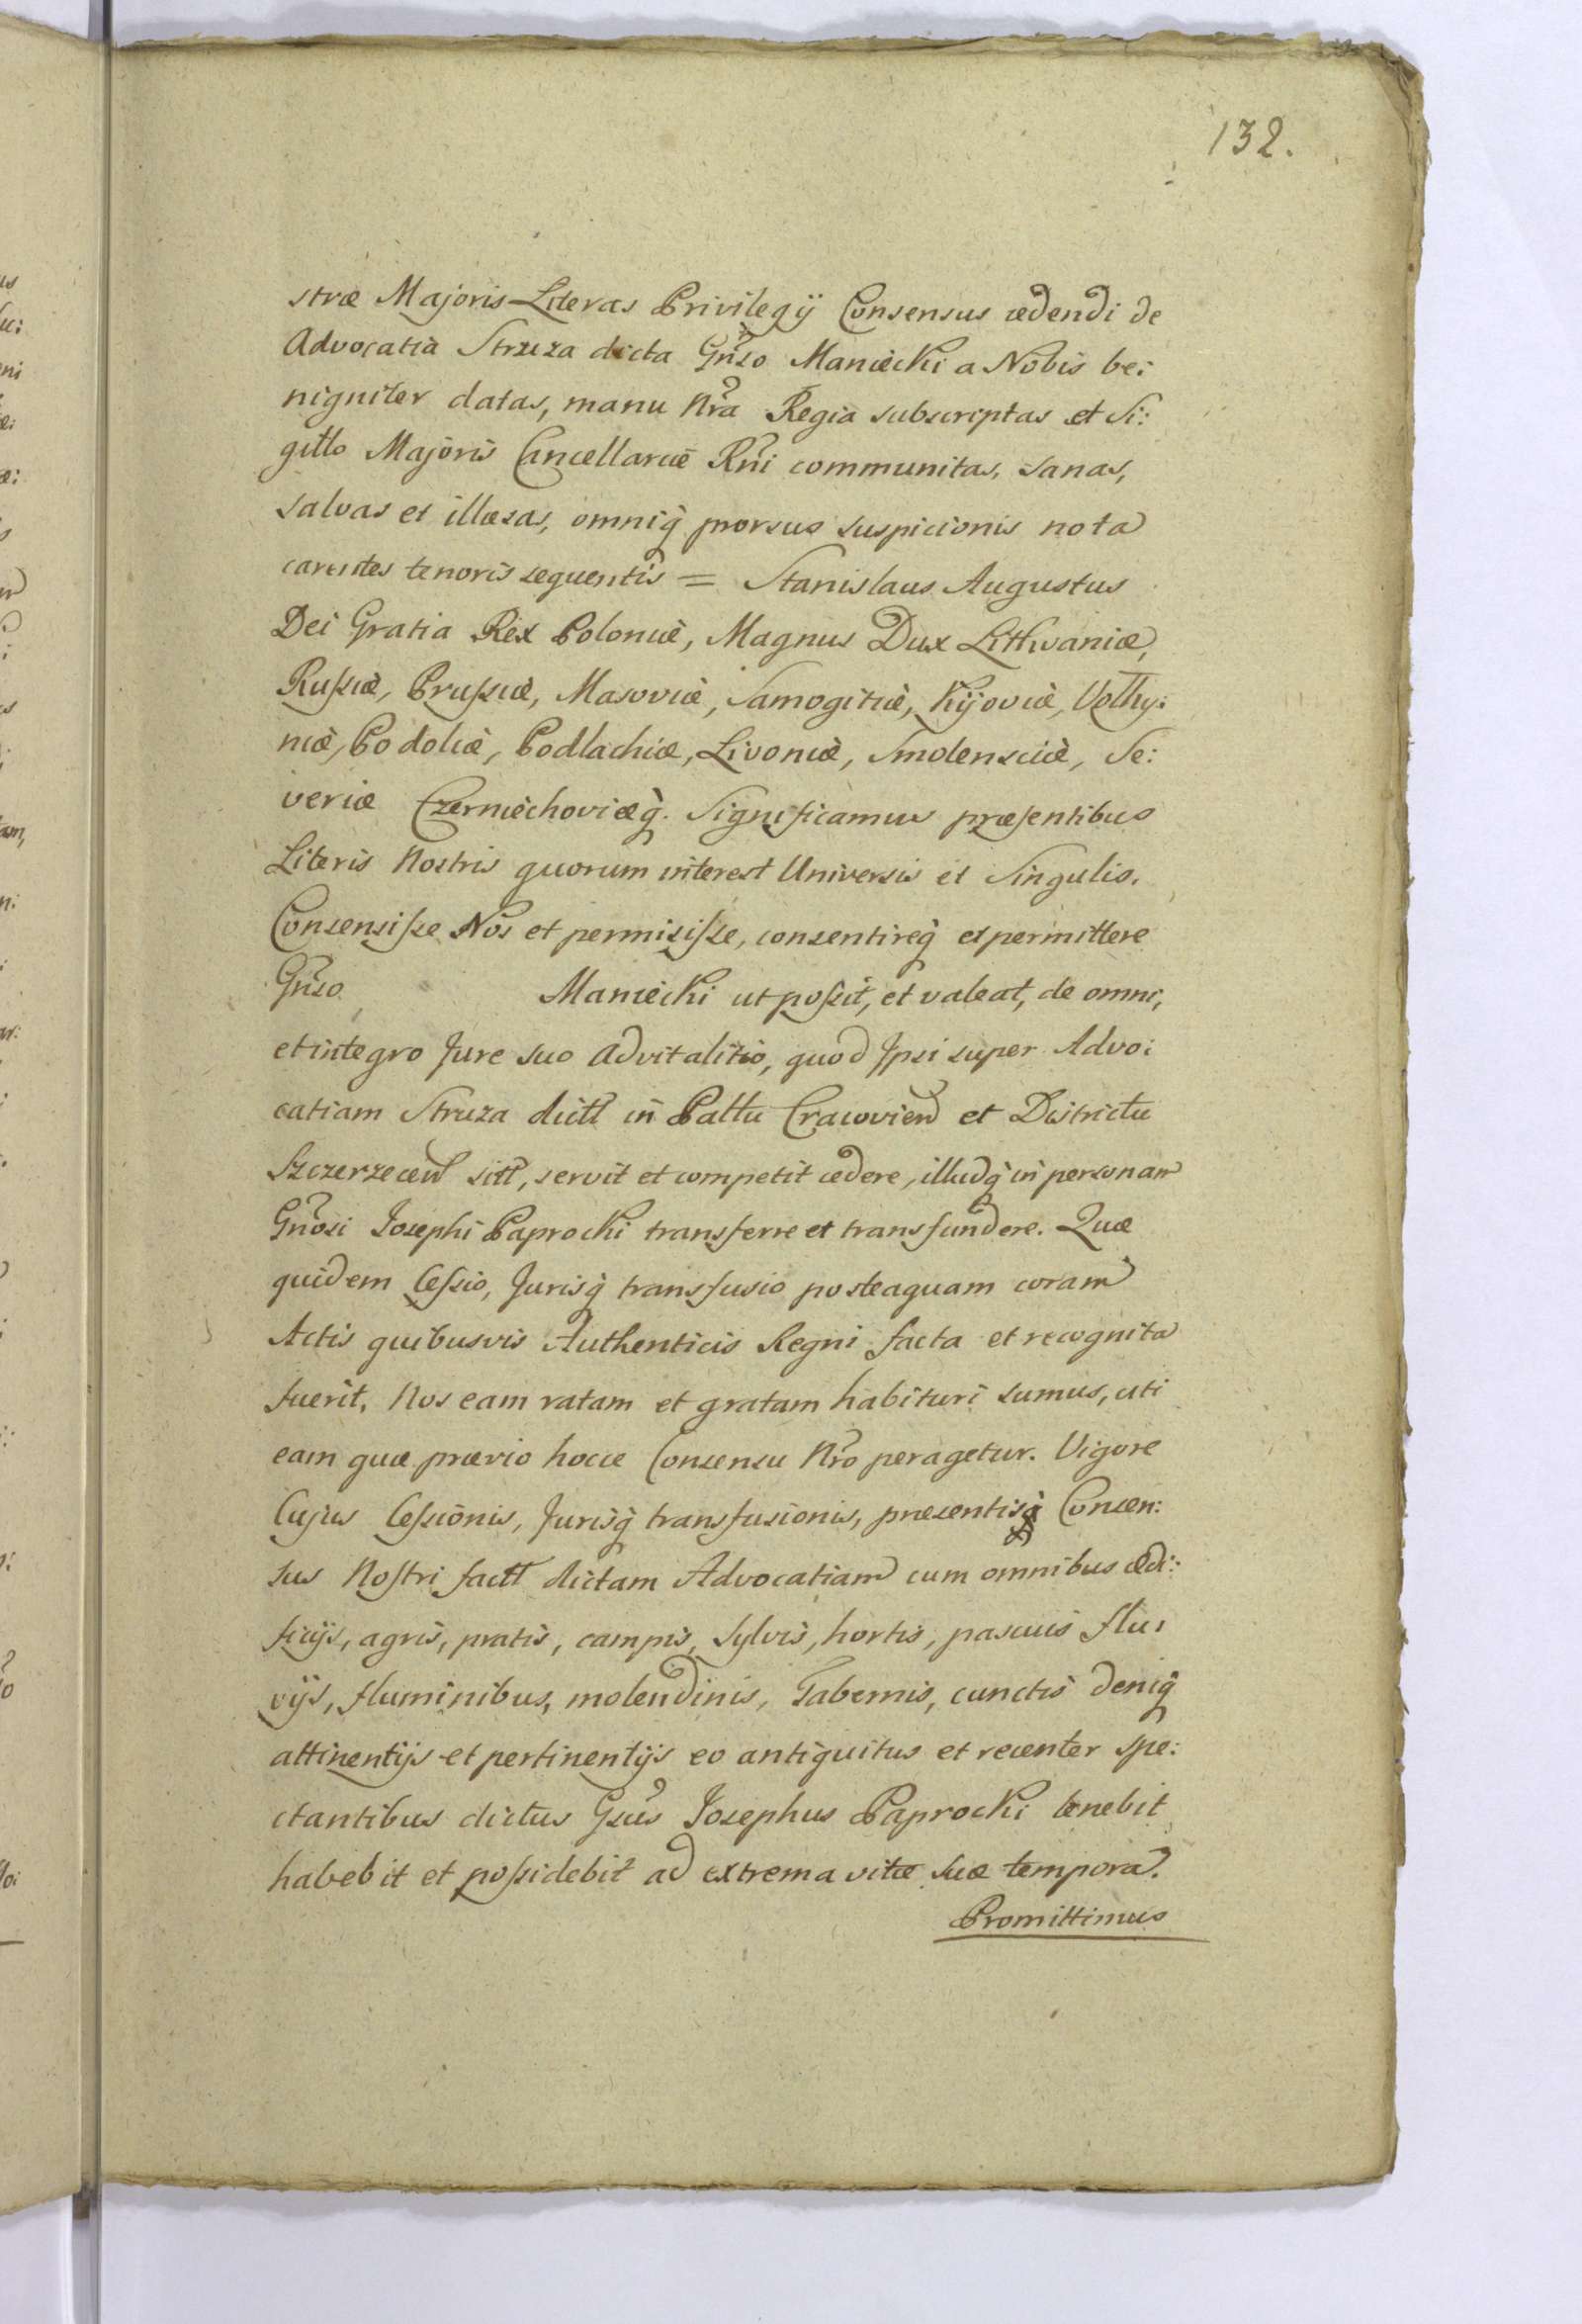 132.
stræ Majoris Literas Privilegÿ Consensus cedendi de
Advocatia Struza dicta Gnso Maniecki a Nobis be:
nigniter datas, manu Nra Regia subscriptas et Si:
gillo Majoris Cancellariæ Rni communitas, sanas,
salvas et illæsas, omniq̀ prorsus suspicionis nota
carentes tenoris sequentis = Stanislaus Augustus
Dei Gratia Rex Poloniæ, Magnus Dux Lithvaniæ,
Rußiæ, Prußiæ, Masoviæ, Samogitiæ, Kijoviæ, Volhy:
niæ, Podoliæ, Podlachiæ, Livoniæ, Smolensciæ, Se:
veriæ Czerniechoviæq̀. Significamus præsentibus
Literis Nostris quorum interest Universis et Singulis.
Consensiße Nos et permisiße, consentireq̀ et permittere
Gnso Maniecki ut poßit, et valeat, de omni,
et integro Jure suo advitalitio, quod Jpsi super Advo:
catiam Struza dictt in Pallu Cracovien et Districtu
Szczerzecen sitt, servit et competit cedere, illudq̀ in personam
Gnosi Josephi Paprocki transferre et transfundere. Quæ
quidem Ceßio, Jurisq̀ transfusio posteaquam coram
Actis quibusvis Authenticis Regni facta et recognita
fuerit, Nos eam ratam et gratam habituri sumus, uti
eam quæ prævio hocce Consensu Nro peragetur. Vigore
Cujus Ceßionis, Jurisq̀ transfusionis, præsentisq̀ Consen:
sus Nostri factt dictam Advocatiam cum omnibus ædi:
ficijs, agris, pratis, campis, sylvis, hortis, pascuis flu:
vijs, fluminibus, molendinis, Tabernis, cunctis deniq̀
attinentijs et pertinentijs eo antiquitus et recenter spe:
ctantibus dictus Gsus Josephus Paprocki tenebit
habebit et poßidebit ad extrema vitæ suæ tempora.
Promittimus